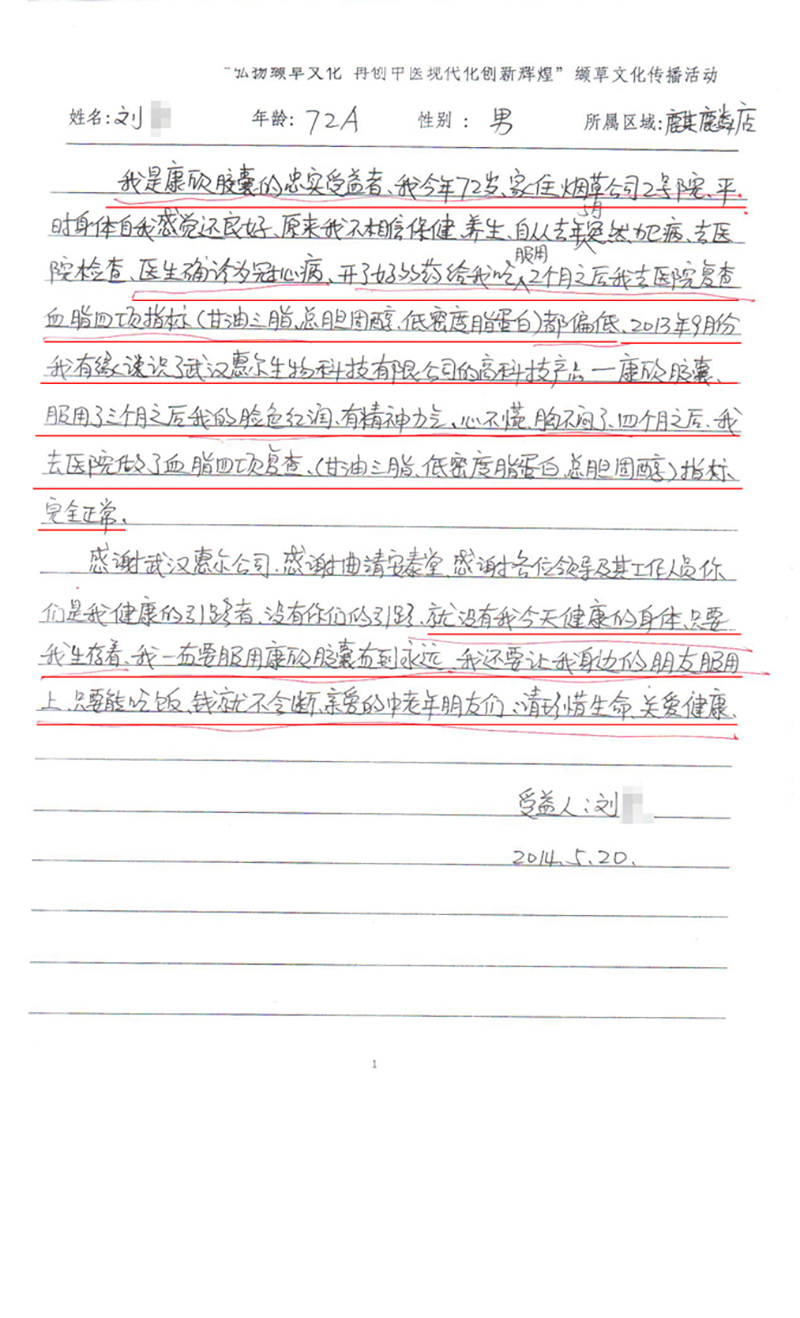 “弘扬缬草文化 再创中医现代化创新辉煌” 缬草文化传播活动
姓名:刘 年龄: 72A 性别: 男 所属区域:麒麟店
我是康欣胶囊的忠实受益者、我今年72岁、家住烟草公司2号院、平
时身体自我感觉还良好、原来我不相信保健、养生、自从去年5月突然犯病、去医
院检查、医生确诊为冠心病、开了好多药给我吃、服用2个月之后我去医院复查
血脂四项指标(甘油三脂、总胆固醇、低密度脂蛋白)都偏低、2013年9月份
我有缘谈识了武汉惠尔生物科技有限公司的高科技产品—康欣胶囊、
服用了三个月之后我的脸色红润、有精神力气、心不慌、胸不闷了、四个月之后、我
去医院做了血脂四项复查、(甘油三脂、低密度脂蛋白、总胆固醇)指标
完全正常、
感谢武汉惠尔公司、感谢曲清安泰堂、感谢各位领导及其工作人员你
们是我健康的引路者、没有你们的引路、就没有我今天健康的身体、只要
我生存着、我一直要服用康欣胶囊直到永远、我还要让我身边的朋友服用
上、只要能吃饭、钱就不会断、亲爱的中老年朋友们:请珍惜生命、关爱健康、
受益人:刘
2014.5.20.
1